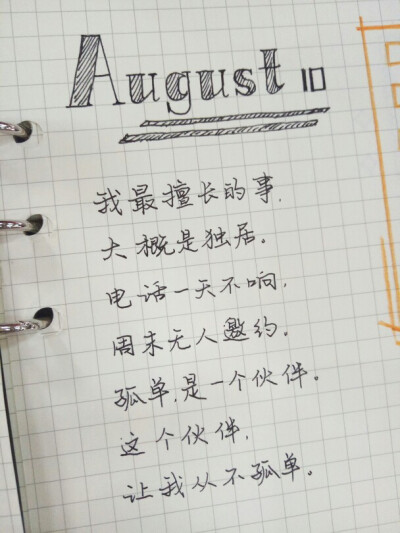 August 10
我最擅长的事,
大概是独居。
电话一天不响,
周末无人邀约。
孤单,是一个伙伴。
这个伙伴,
让我从不孤单。